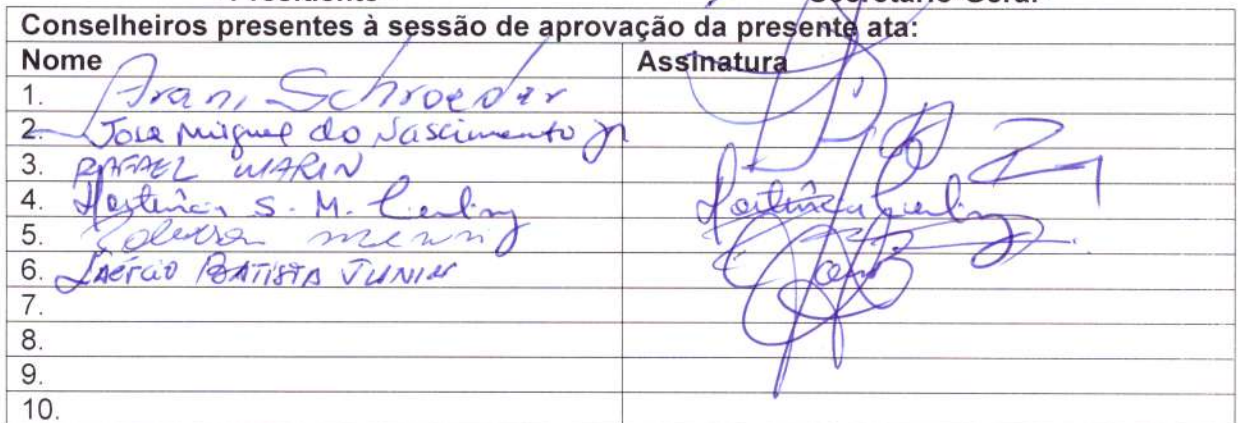 Presidente Secretário-Geral
Conselheiros presentes à sessão de aprovação da presente ata:
Nome Assinatura
1. Irani Schroeder
2. José Miguel do Nascimento Jr
3. RAFAEL MARIN
4. Hortência S. M. Hortência
5.
6. LAÉRCIO BATISTA JUNIOR
7.
8.
9.
10.